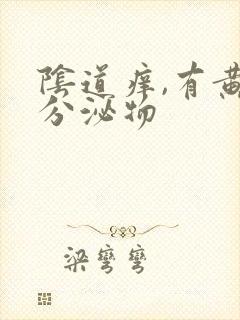 陰道痒,有黄
分泌物
梁彎彎